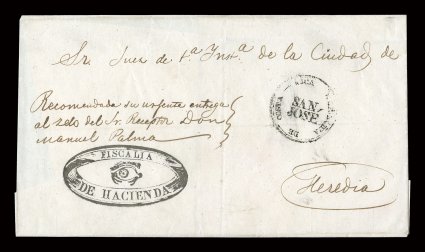 Sr. Juez de 1.ª Insª. de la Ciudad de
Recomendada su urgente entrega
al zelo del Sr. Receptor Don
Manuel Palma
SAN-
JOSE
FISCALIA
DE HACIENDA
Heredia